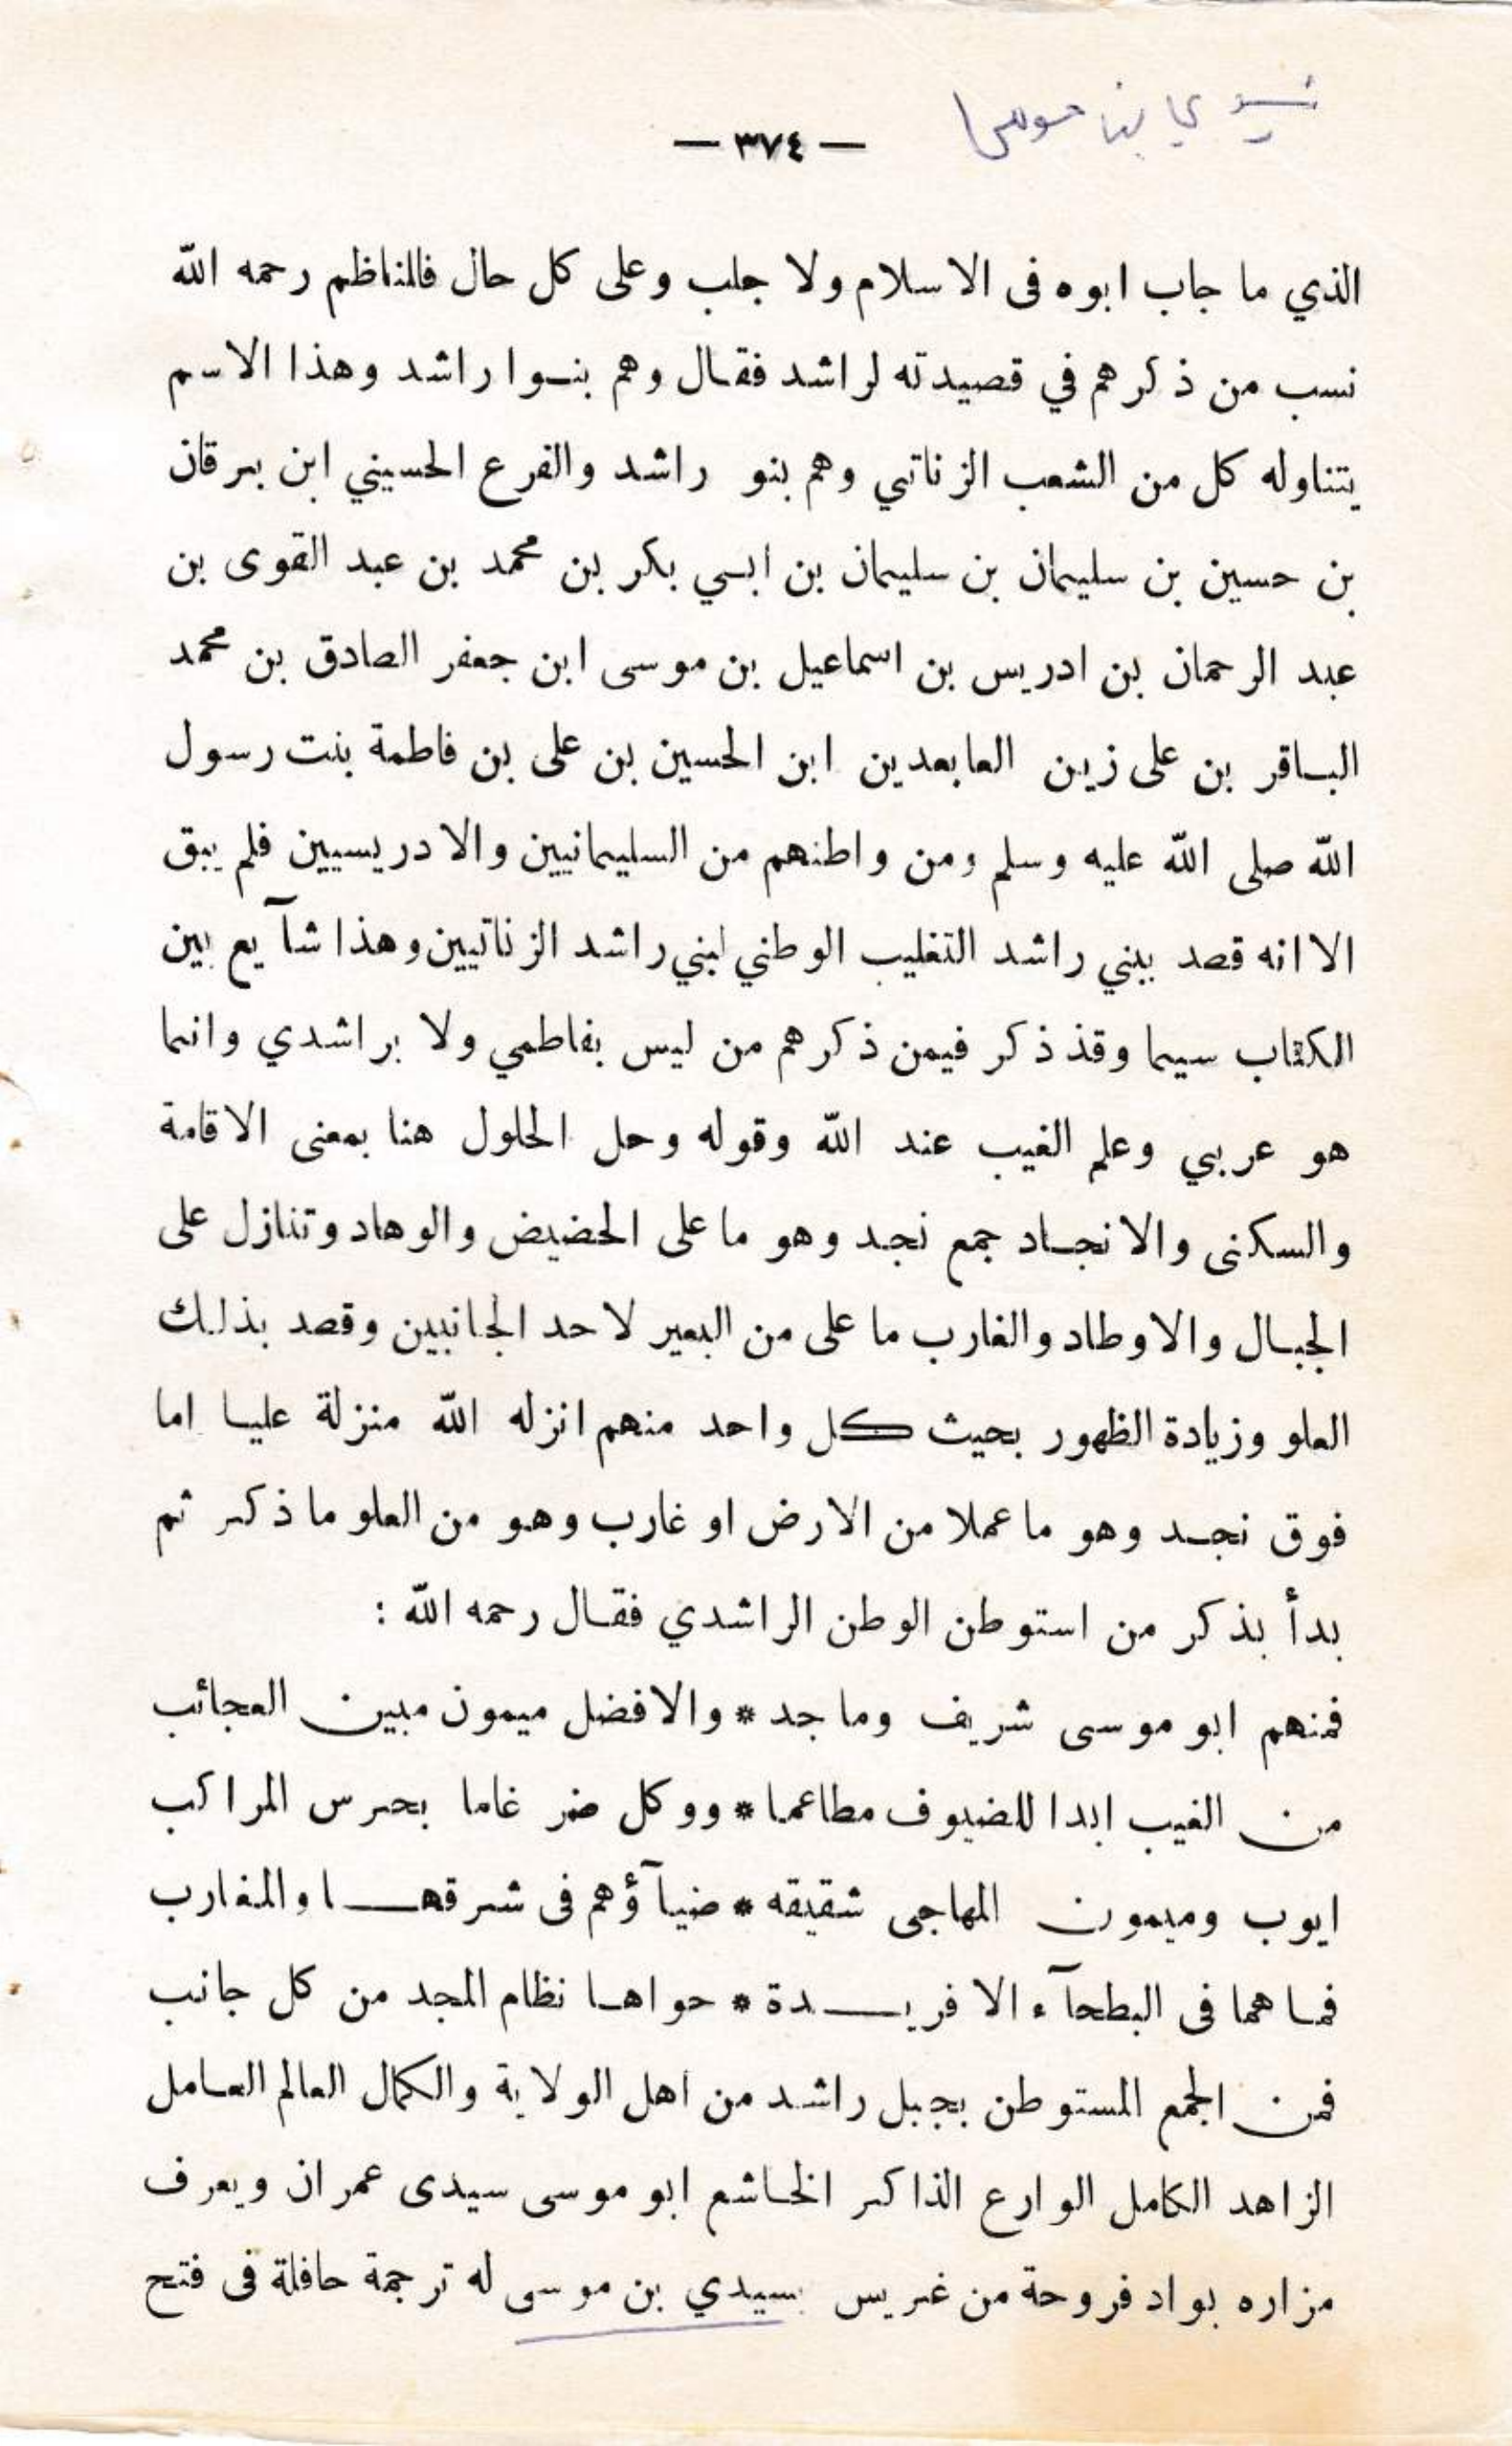 سيدي بن موسى
— ٣٧٤ —
الذي ما جاب ابوه فى الاسلام ولا جلب وعلى كل حال فالناظم رحمه الله
نسب من ذكرهم في قصيدته لراشد فقال وهم بنوا راشد وهذا الاسم
يتناوله كل من الشعب الزناتي وهم بنو راشد والفرع الحسيني ابن يرقان
بن حسين بن سليمان بن سليمان بن ابي بكر بن محمد بن عبد القوى بن
عبد الرحمان بن ادريس بن اسماعيل بن موسى ابن جعفر الصادق بن محمد
الباقر بن على زين العابعدين ابن الحسين بن على بن فاطمة بنت رسول
الله صلى الله عليه وسلم ومن واطنهم من السليمانيين والادريسيين فلم يبق
الا انه قصد ببني راشد التغليب الوطني لبني راشد الزناتيين وهذا شآيع بين
الكتاب سيما وقذ ذكر فيمن ذكرهم من ليس بفاطمي ولا براشدي وانما
هو عربي وعلم الغيب عند الله وقوله وحل الحلول هنا بمعنى الاقامة
والسكنى والانجاد جمع نجد وهو ما على الحضيض والوهاد وتنازل على
الجبال والاوطاد والغارب ما على من البعير لاحد الجانبين وقصد بذلك
العلو وزيادة الظهور بحيث كل واحد منهم انزله الله منزلة عليا اما
فوق نجد وهو ما عملا من الارض او غارب وهو من العلو ما ذكر ثم
بدأ بذكر من استوطن الوطن الراشدي فقال رحمه الله :
فمنهم ابو موسى شريف وماجد * والافضل ميمون مبين العجائب
من الغيب ابدا للضيوف مطاعما * ووكل ضر غاما بحرس المراكب
ايوب وميمون المهاجى شقيقه * ضيآؤهم فى شرقها والمغارب
فما هما فى البطحآء الا فريدة * حواها نظام المجد من كل جانب
فمن الجمع المستوطن بجبل راشد من اهل الولاية والكمال العالم العامل
الزاهد الكامل الوارع الذاكر الخاشع ابو موسى سيدى عمران ويعرف
مزاره بواد فروحة من غريس بسيدي بن موسى له ترجمة حافلة فى فتح